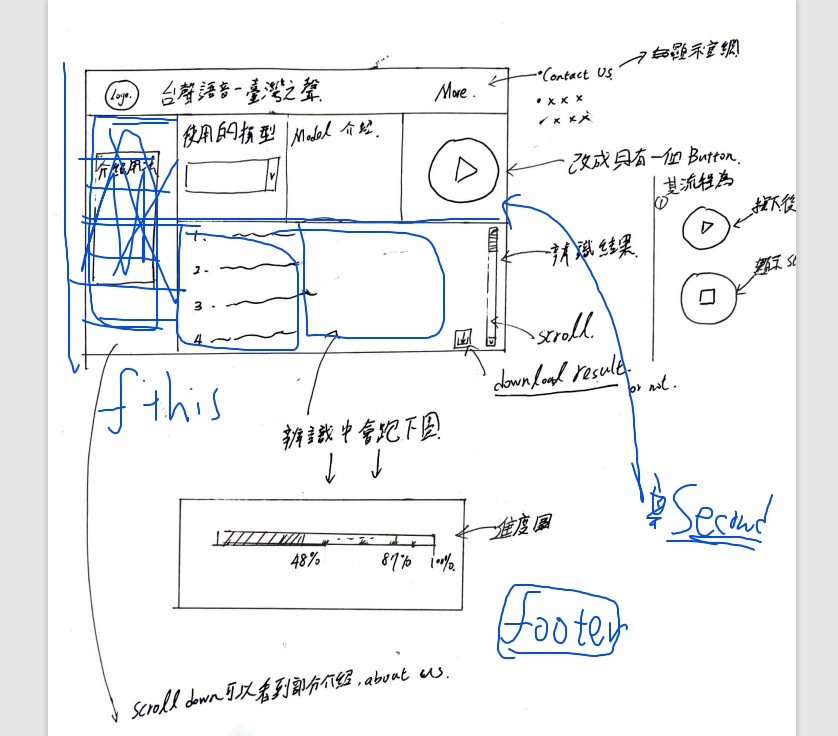 Logo.
台聲語音-臺灣之聲
More.
•Contact Us
顯示官網
• x x x
✓ x x x
使用的模型
Model 介紹.
介紹用法
改成只有一個 Button.
其流程為
①
按下後
顯示
1.
2.
3.
4
辨識結果.
scroll.
download result.
or not.
f this
辨識中會跑下圖
進度圖
48%
87%
100%
Second
footer
scroll down 可以看到部分介紹, about us.